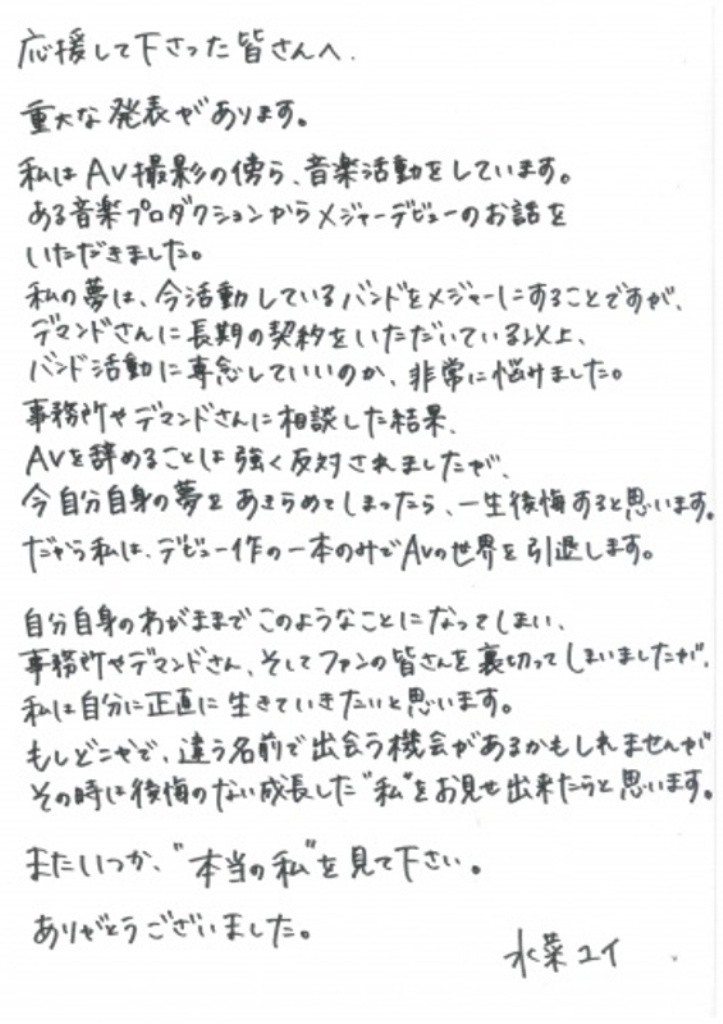 応援して下さった皆さんへ.
重大な発表があります。
私はAV撮影の傍ら、音楽活動をしています。
ある音楽プロダクションからメジャーデビューのお話を
いただきました。
私の夢は、今活動しているバンドをメジャーにすることですが、
デマンドさんに長期の契約をいただいている以上、
バンド活動に専念していいのか、非常に悩みました。
事務所やデマンドさんに相談した結果、
AVを辞めることは強く反対されましたが、
今自分自身の夢をあきらめてしまったら、一生後悔すると思います。
だから私は、デビュー作の一本のみでAVの世界を引退します。
自分自身のわがままでこのようなことになってしまい、
事務所やデマンドさん、そしてファンの皆さんを裏切ってしまいましたが、
私は自分に正直に生きていきたいと思います。
もしどこかで、違う名前で出会う機会があるかもしれませんが
その時は後悔のない成長した"私"をお見せ出来たらと思います。
またいつか、"本当の私"を見て下さい。
ありがとうございました。
水菜ユイ